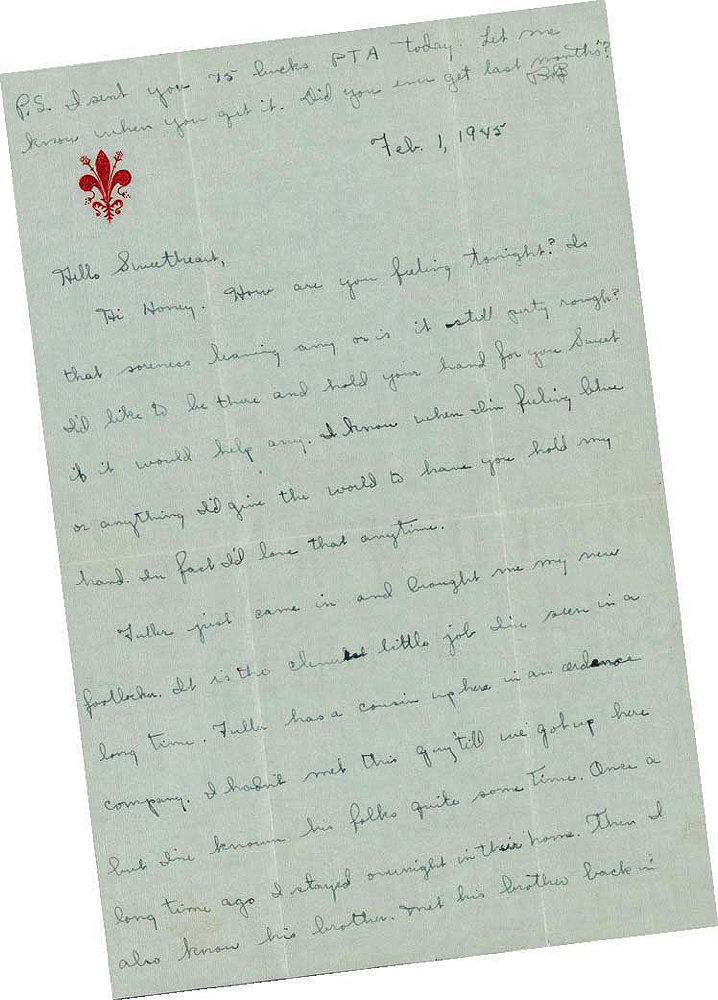 P.S. I sent you 75 bucks PTA today. Let me
know when you get it. Did you ever get last months?
Feb. 1, 1945
Hello Sweetheart,
Hi Honey. How are you feeling tonight? Is
that soreness leaving any or is it still purty rough?
I'd like to be there and hold your hand for you Sweet
if it would help any. I know when I'm feeling blue
or anything I'd give the world to have you hold my
hand. In fact I'd love that anytime.
Fuller just came in and brought me my new
footlocker. It is the cleverest little job I've seen in a
long time. Fuller has a cousin up here in an ordance
company. I hadn't met this guy 'till we got up here
but I've known his folks quite some time. Once a
long time ago I stayed overnight in their home. Then I
also know his brother. Met his brother back in